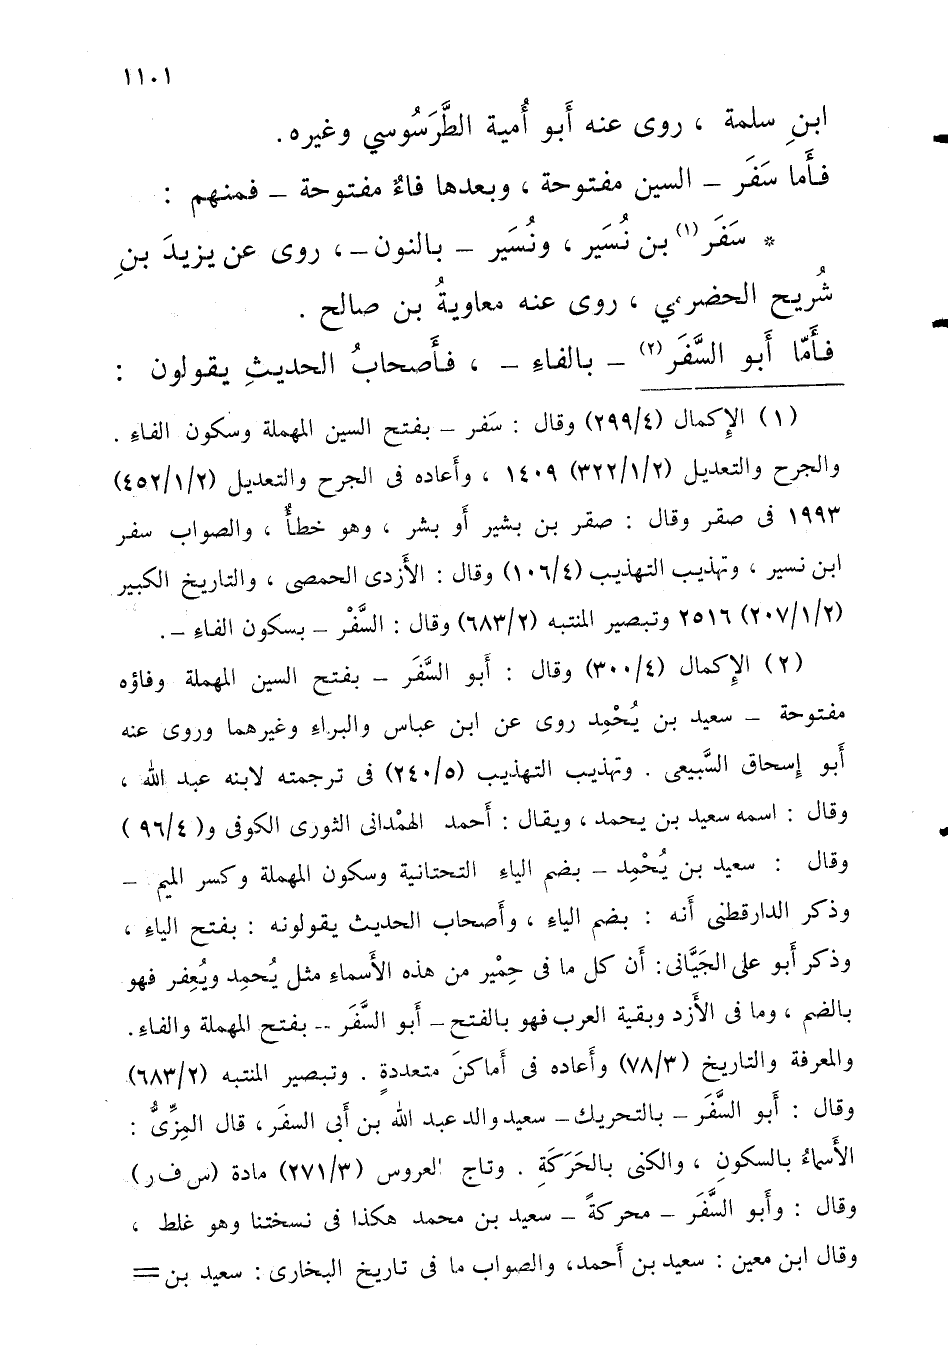 ١١٠١
ابنِ سلمة ، روى عنه أَبو أُمية الطَّرَسُوسي وغيره.
فأَما سَفَر – السين مفتوحة ، وبعدها فاءٌ مفتوحة – فمنهم :
* سَفَر(١) بن نُسَير ، ونُسَير – بالنون –، روى عن يزيدَ بنِ
شُريح الحضرمي ، روى عنه معاويةُ بن صالح .
فأَمّا أَبو السَّفَر(٢) – بالفاءِ – ، فأَصحابُ الحديثِ يقولون :
(١) الإكمال (٢٩٩/٤) وقال : سَفر – بفتح السين المهملة وسكون الفاءِ .
والجرح والتعديل (٣٢٢/١/٢) ١٤٠٩ ، وأَعاده فى الجرح والتعديل (٤٥٢/١/٢)
١٩٩٣ فى صقر وقال : صقر بن بشير أَو بشر ، وهو خطأٌ ، والصواب سفر
ابن نسير ، وتهذيب التهذيب (١٠٦/٤) وقال : الأَزدى الحمصى ، والتاريخ الكبير
(٢٠٧/١/٢) ٢٥١٦ وتبصير المنتبه (٦٨٣/٢) وقال : السَّفْر – بسكون الفاءِ –.
(٢) الإكمال (٣٠٠/٤) وقال : أَبو السَّفَر – بفتح السين المهملة وفاؤه
مفتوحة – سعيد بن يُحْمِد روى عن ابن عباس والبراءِ وغيرهما وروى عنه
أَبو إسحاق السَّبيعى . وتهذيب التهذيب (٢٤٠/٥) فى ترجمته لابنه عبد الله ،
وقال : اسمه سعيد بن يحمد ، ويقال : أَحمد الهمْدانى الثورى الكوفى و(٩٦/٤)
وقال : سعيد بن يُحْمِد – بضم الياءِ التحتانية وسكون المهملة وكسر الميم –
وذكر الدارقطنى أَنه : بضم الياءِ ، وأَصحاب الحديث يقولونه : بفتح الياءِ ،
وذكر أَبو على الجَيَّانى : أَن كل ما فى حِمْير من هذه الأَسماءِ مثل يُحمِد ويُعِفر فهو
بالضم ، وما فى الأَزد وبقية العرب فهو بالفتح – أَبو السَّفَر -- بفتح المهملة والفاءِ.
والمعرفة والتاريخ (٧٨/٣) وأَعاده فى أَماكنَ متعددةٍ . وتبصير المنتبه (٦٨٣/٢)
وقال : أَبو السَّفَر – بالتحريك – سعيد والد عبد الله بن أَبى السفَر ، قال المِزِّىُّ :
الأَسماءُ بالسكونِ ، والكنى بالحَرَكَةِ . وتاج العروس (٢٧١/٣) مادة (س ف ر)
وقال : وأَبو السَّفَر – محركةً – سعيد بن محمد هكذا فى نسختنا وهو غلط ،
وقال ابن معين : سعيد بن أَحمد، والصواب ما فى تاريخ البخارى : سعيد بن =